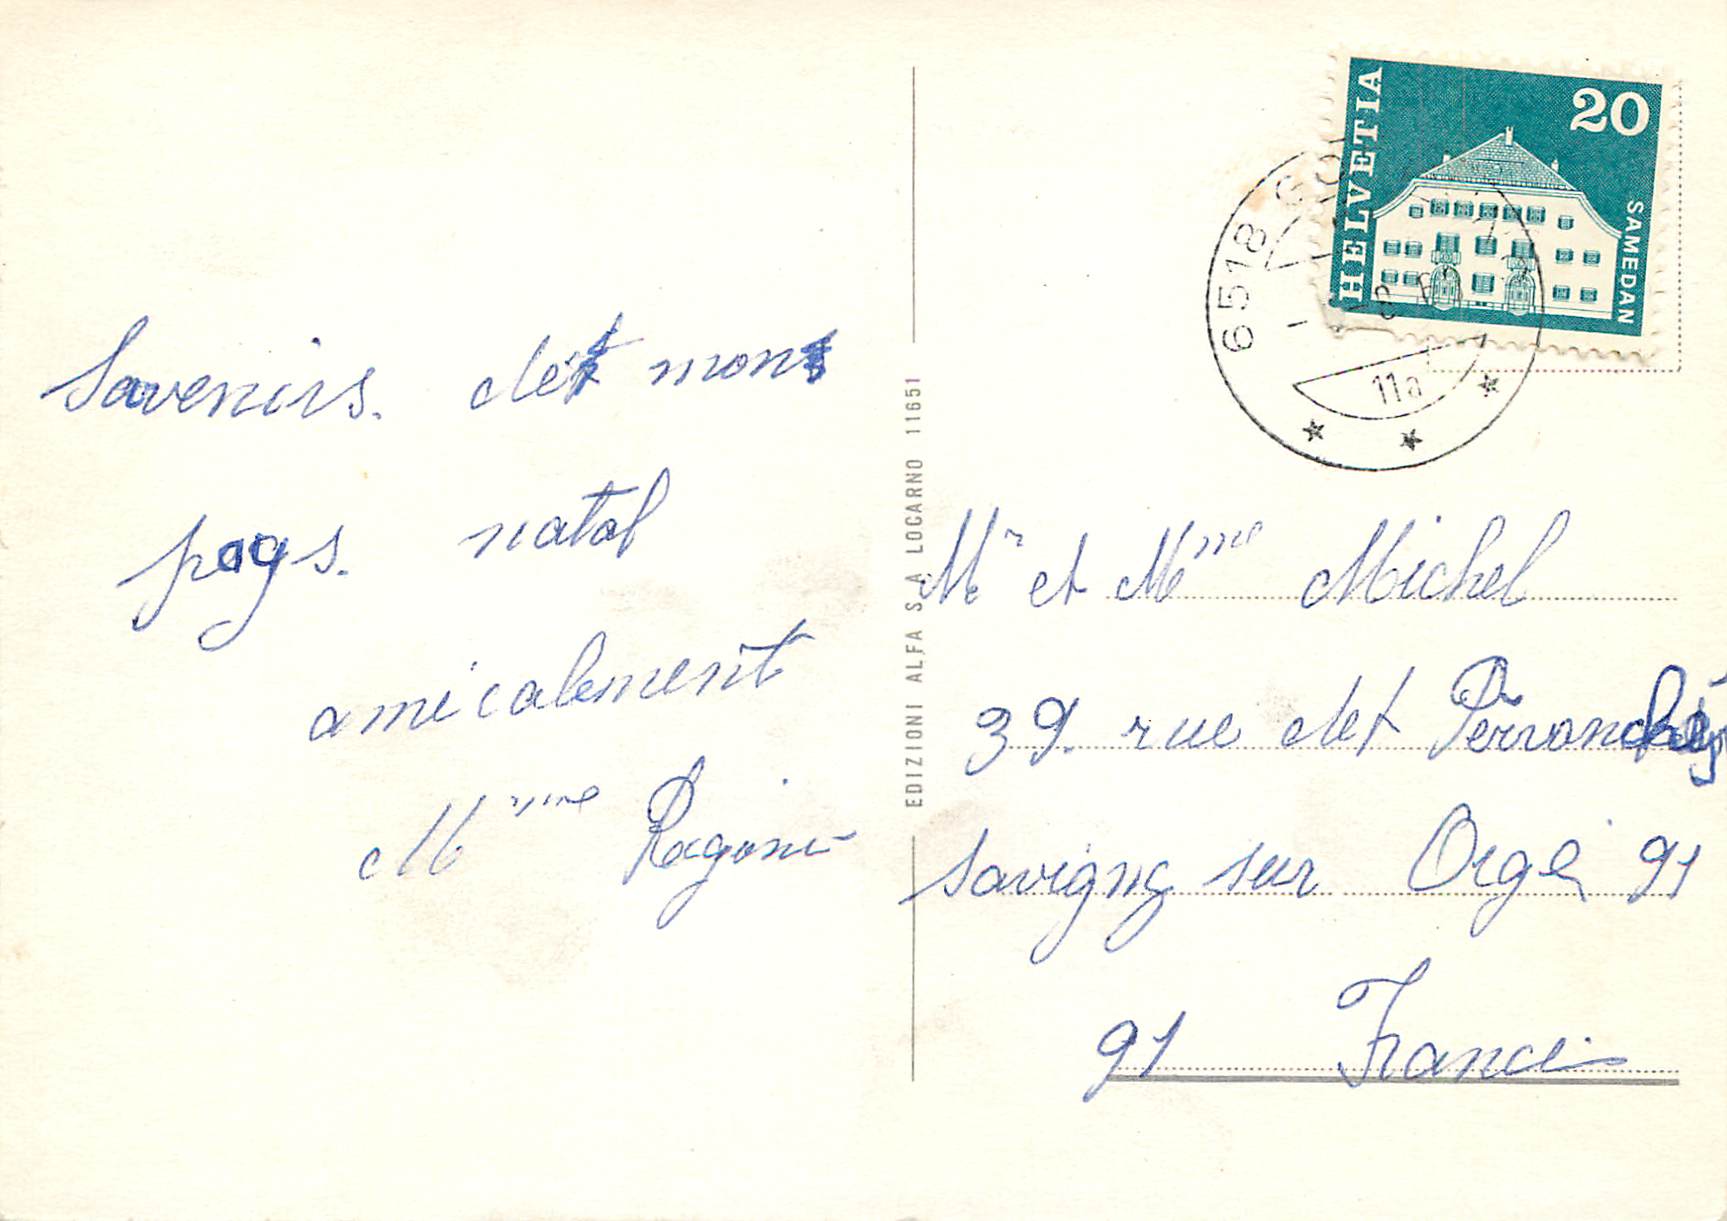 Savenirs. de mon
pays. natal
amicalement
Mme Ragoni
EDIZIONI ALFA S.A LOCARNO 11651
HELVETIA
20
SAMEDAN
6518 GO
11a
Mr et Mme Michel
39. rue det
Savigny sur Orge 91
91 France